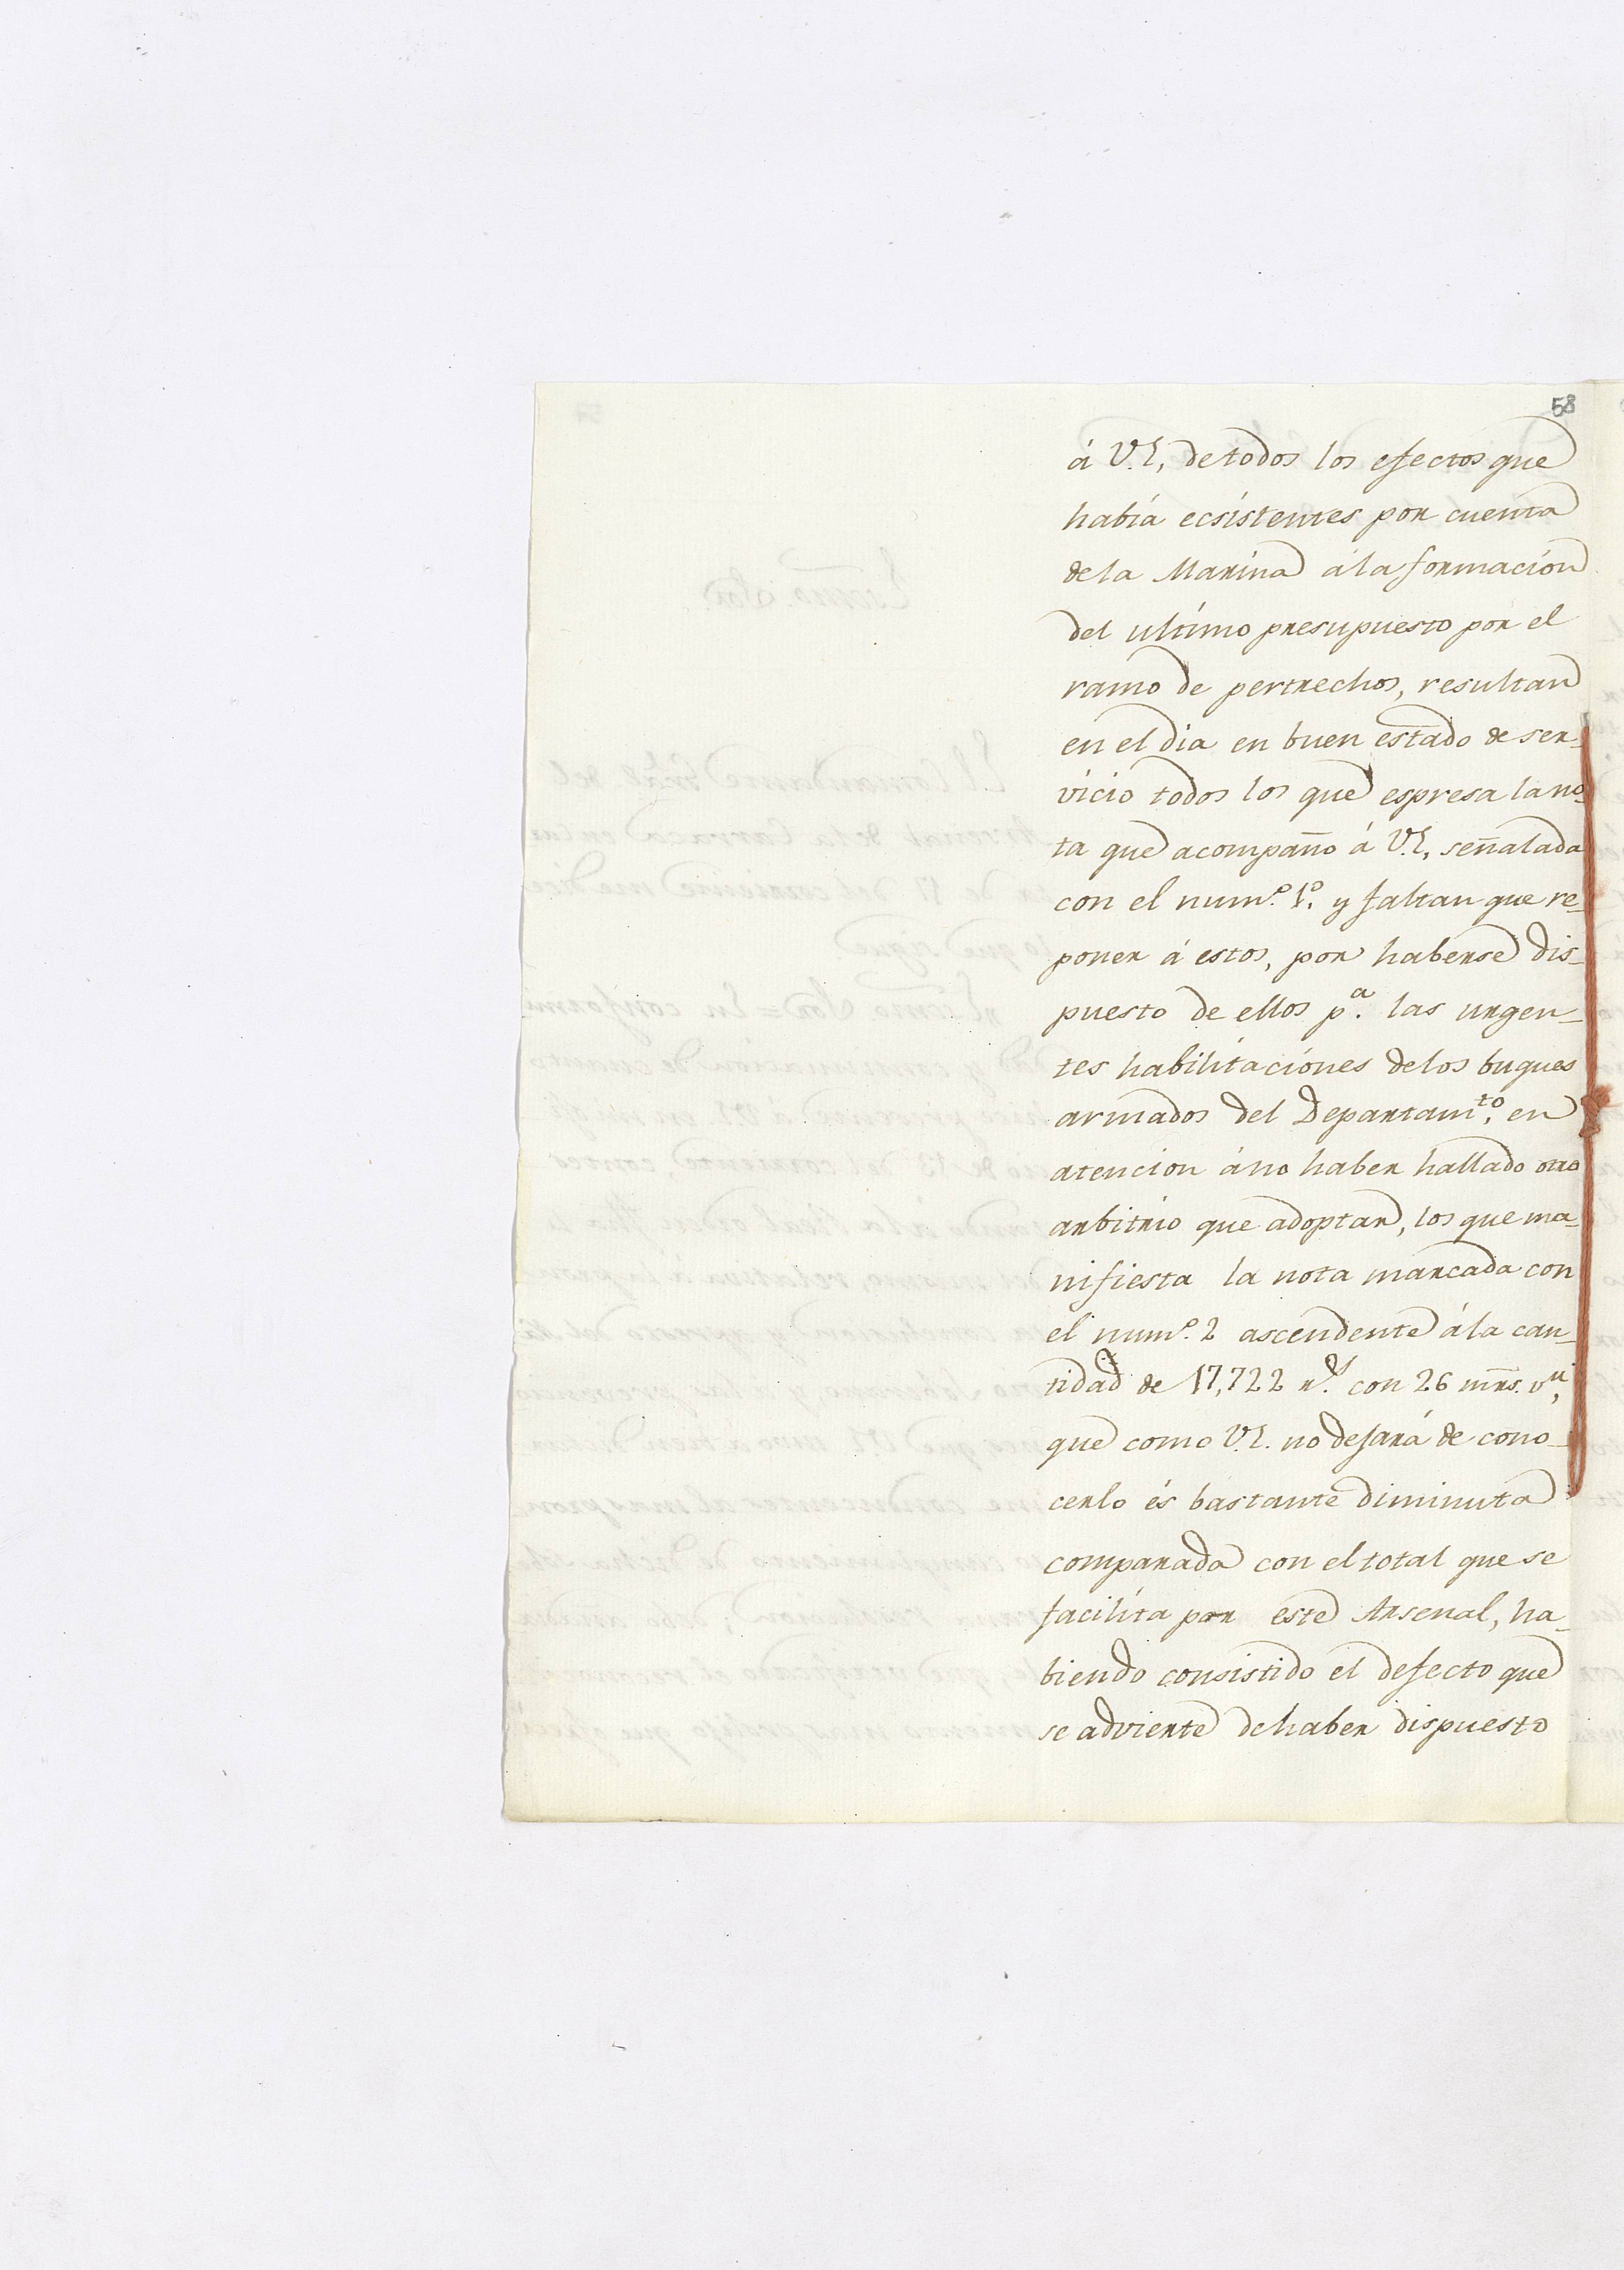 58
á V.E, de todos los efectos que
había ecsistentes por cuenta
de la Marina á la formacion
del ultimo presupuesto por el
ramo de pertrechos, resultan
en el dia en buen estado de ser-
vicio todos los que espresa la no-
ta que acompaño á V.E, señalada
con el num.º 1.º y faltan que re-
poner á estos, por haberse dis-
puesto de ellos p.ª las urgen-
tes habilitaciones de los buques
armados del Departam.to, en
atencion á no haber hallado otro
arbitrio que adoptar, los que ma-
nifiesta la nota marcada con
el num.º 2 ascendente á la can-
tidad de 17,722 r.s con 26 mrs. v.n,
que como V.E. no dejará de cono-
cerlo és bastante diminuta
comparada con el total que se
facilita por este Arsenal, ha-
biendo consistido el defecto que
se advierte de haber dispuesto